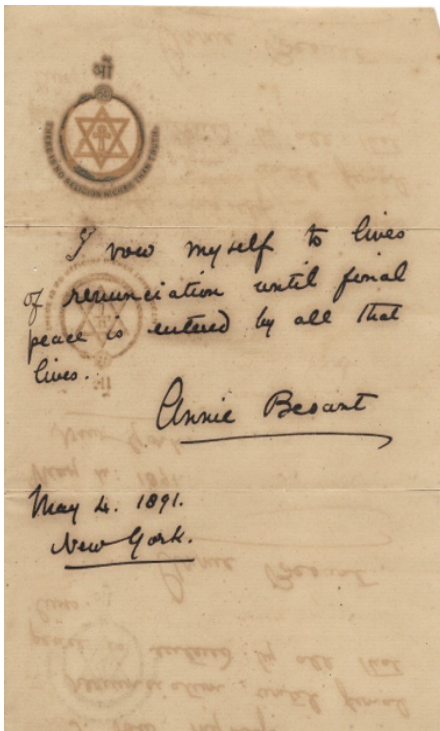 ॐ
THERE IS NO RELIGION HIGHER THAN TRUTH
I vow myself to lives
of renunciation until final
peace is entered by all that
lives.
Annie Besant
May 4. 1891.
New York.